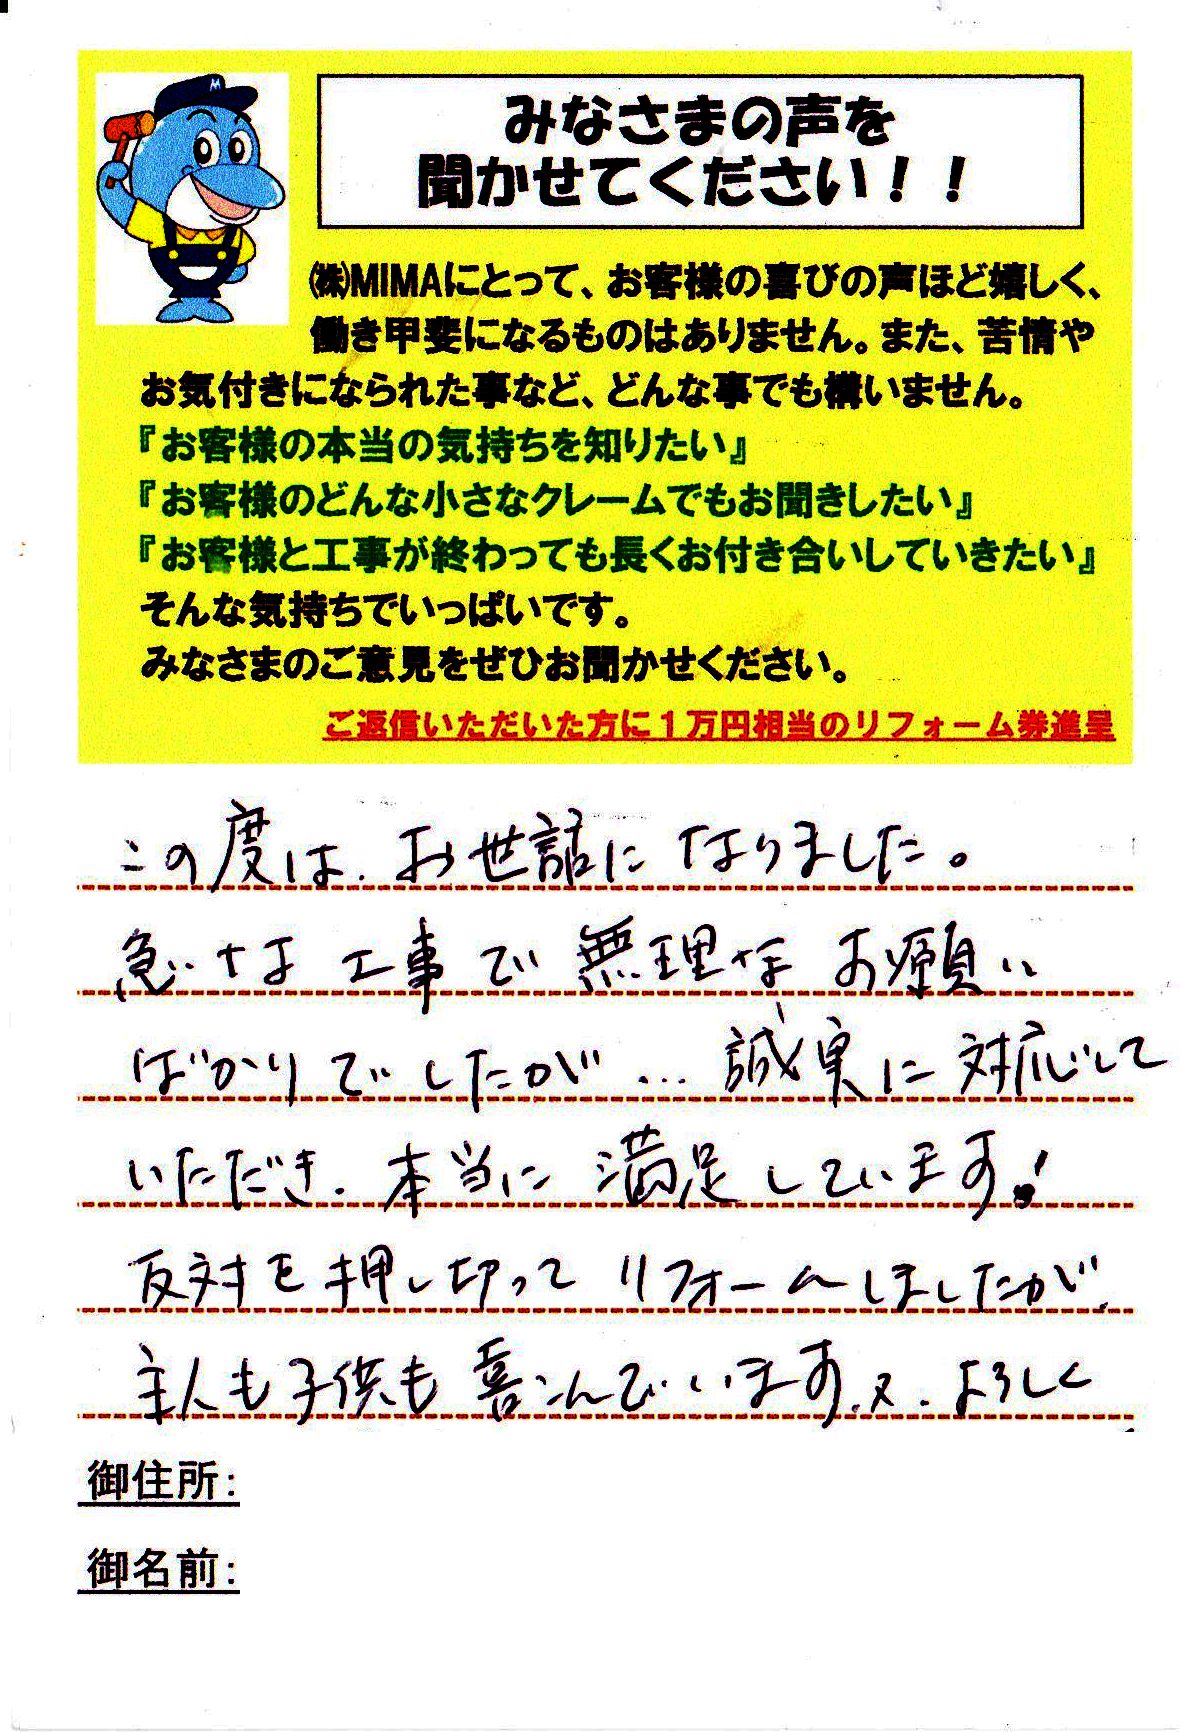 M
みなさまの声を
聞かせてください！！
㈱MIMAにとって、お客様の喜びの声ほど嬉しく、
働き甲斐になるものはありません。また、苦情や
お気付きになられた事など、どんな事でも構いません。
『お客様の本当の気持ちを知りたい』
『お客様のどんな小さなクレームでもお聞きしたい』
『お客様と工事が終わっても長くお付き合いしていきたい』
そんな気持ちでいっぱいです。
みなさまのご意見をぜひお聞かせください。
ご返信いただいた方に１万円相当のリフォーム券進呈
この度は、お世話になりました。
急な工事で無理なお願い
ばかりでしたが…誠実に対応して
いただき、本当に満足しています!
反対を押し切ってリフォームしましたが、
主人も子供も喜んでいます。又、よろしく
御住所：
御名前：